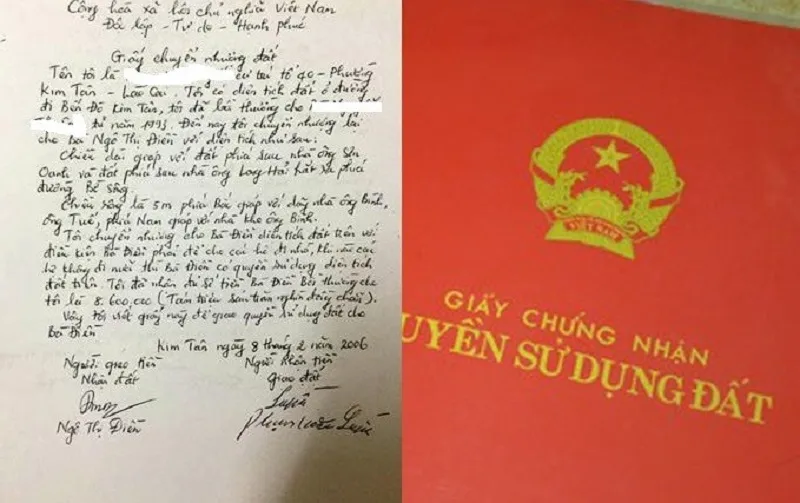 Cộng hòa xã hội chủ nghĩa Việt Nam
Độc lập - Tự do - Hạnh phúc
Giấy chuyển nhượng đất
Tên tôi là cư trú tổ 90 - Phường
Kim Tân - Lào Cai. Tôi có diện tích đất ở đường
đi Bến Đò Kim Tân, tôi đã bồi thường cho
từ năm 1993. Đến nay tôi chuyển nhượng lại
cho Bà Ngô Thị Điền với diện tích như sau:
Chiều dài giáp với đất phía sau nhà ông Sơn
Oanh và đất phía sau nhà ông Long Hải kất xa phía
đường Bờ sông.
Chiều rộng là 5m phía Bắc giáp với dãy nhà ông Bình,
ông Tuế, phía Nam giáp với nhà kho ông Bình.
Tôi chuyển nhượng cho Bà Điền diện tích đất trên với
điều kiện Bà Điền phải để cho các hộ đi nhờ, khi nào các
hộ không đi nữa thì Bà Điền có quyền sử dụng diện tích
đất trên. Tôi đã nhận đủ số tiền Bà Điền Bồi thường cho
tôi là 8.600.000 (Tám triệu sáu trăm nghìn đồng chẵn).
Vậy tôi viết giấy này để giao quyền sử dụng đất cho
Bà Điền
Kim Tân ngày 8 tháng 2 năm 2006
Người giao tiền Người nhận tiền
Nhận đất Giao đất
Ngô Thị Điền
VIỆT NAM
GIẤY CHỨNG NHẬN
QUYỀN SỬ DỤNG ĐẤT